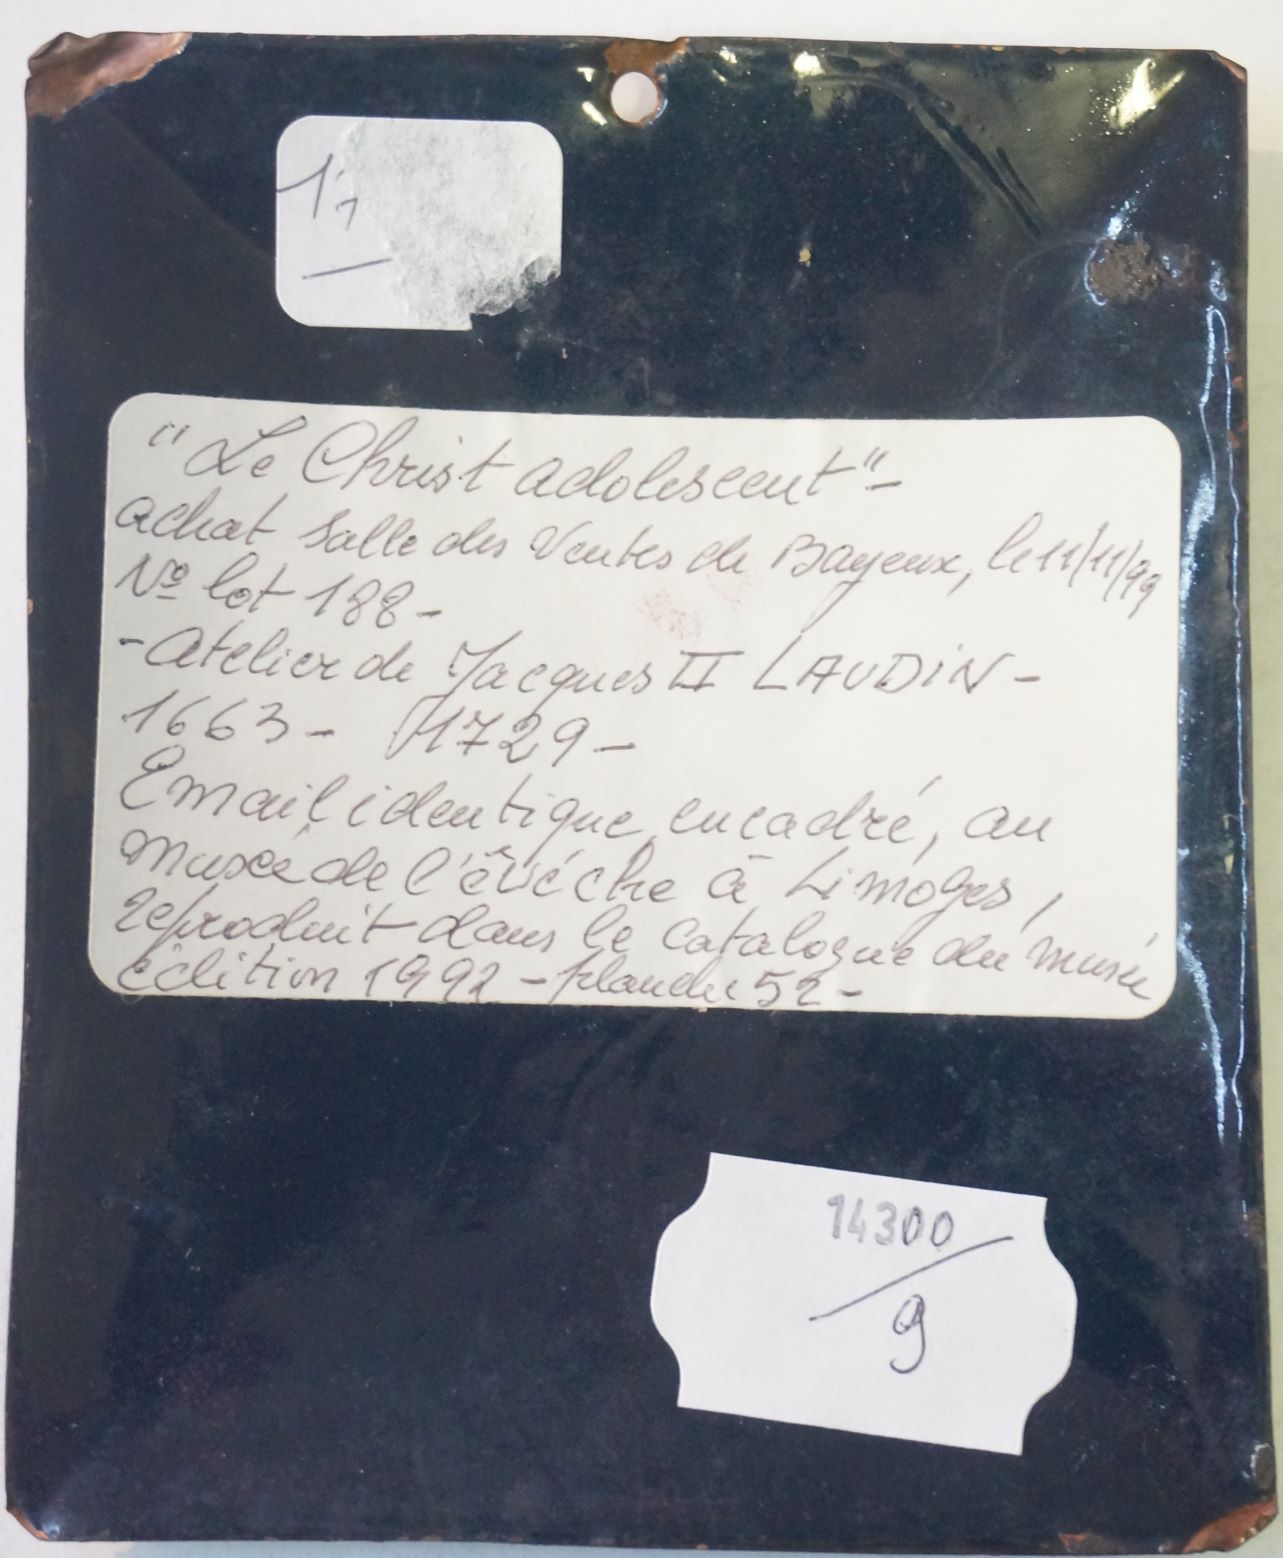 1,7
"Le Christ adolescent"-
achat Salle des Ventes de Bayeux, le 11/11/99
Nº lot 188-
- Atelier de Jacques II LAUDIN -
1663 - 1729 -
Email identique encadré, au
musée de l'évêché à Limoges,
reproduit dans le catalogue du musée
édition 1992 - planche 52 -
14300
9